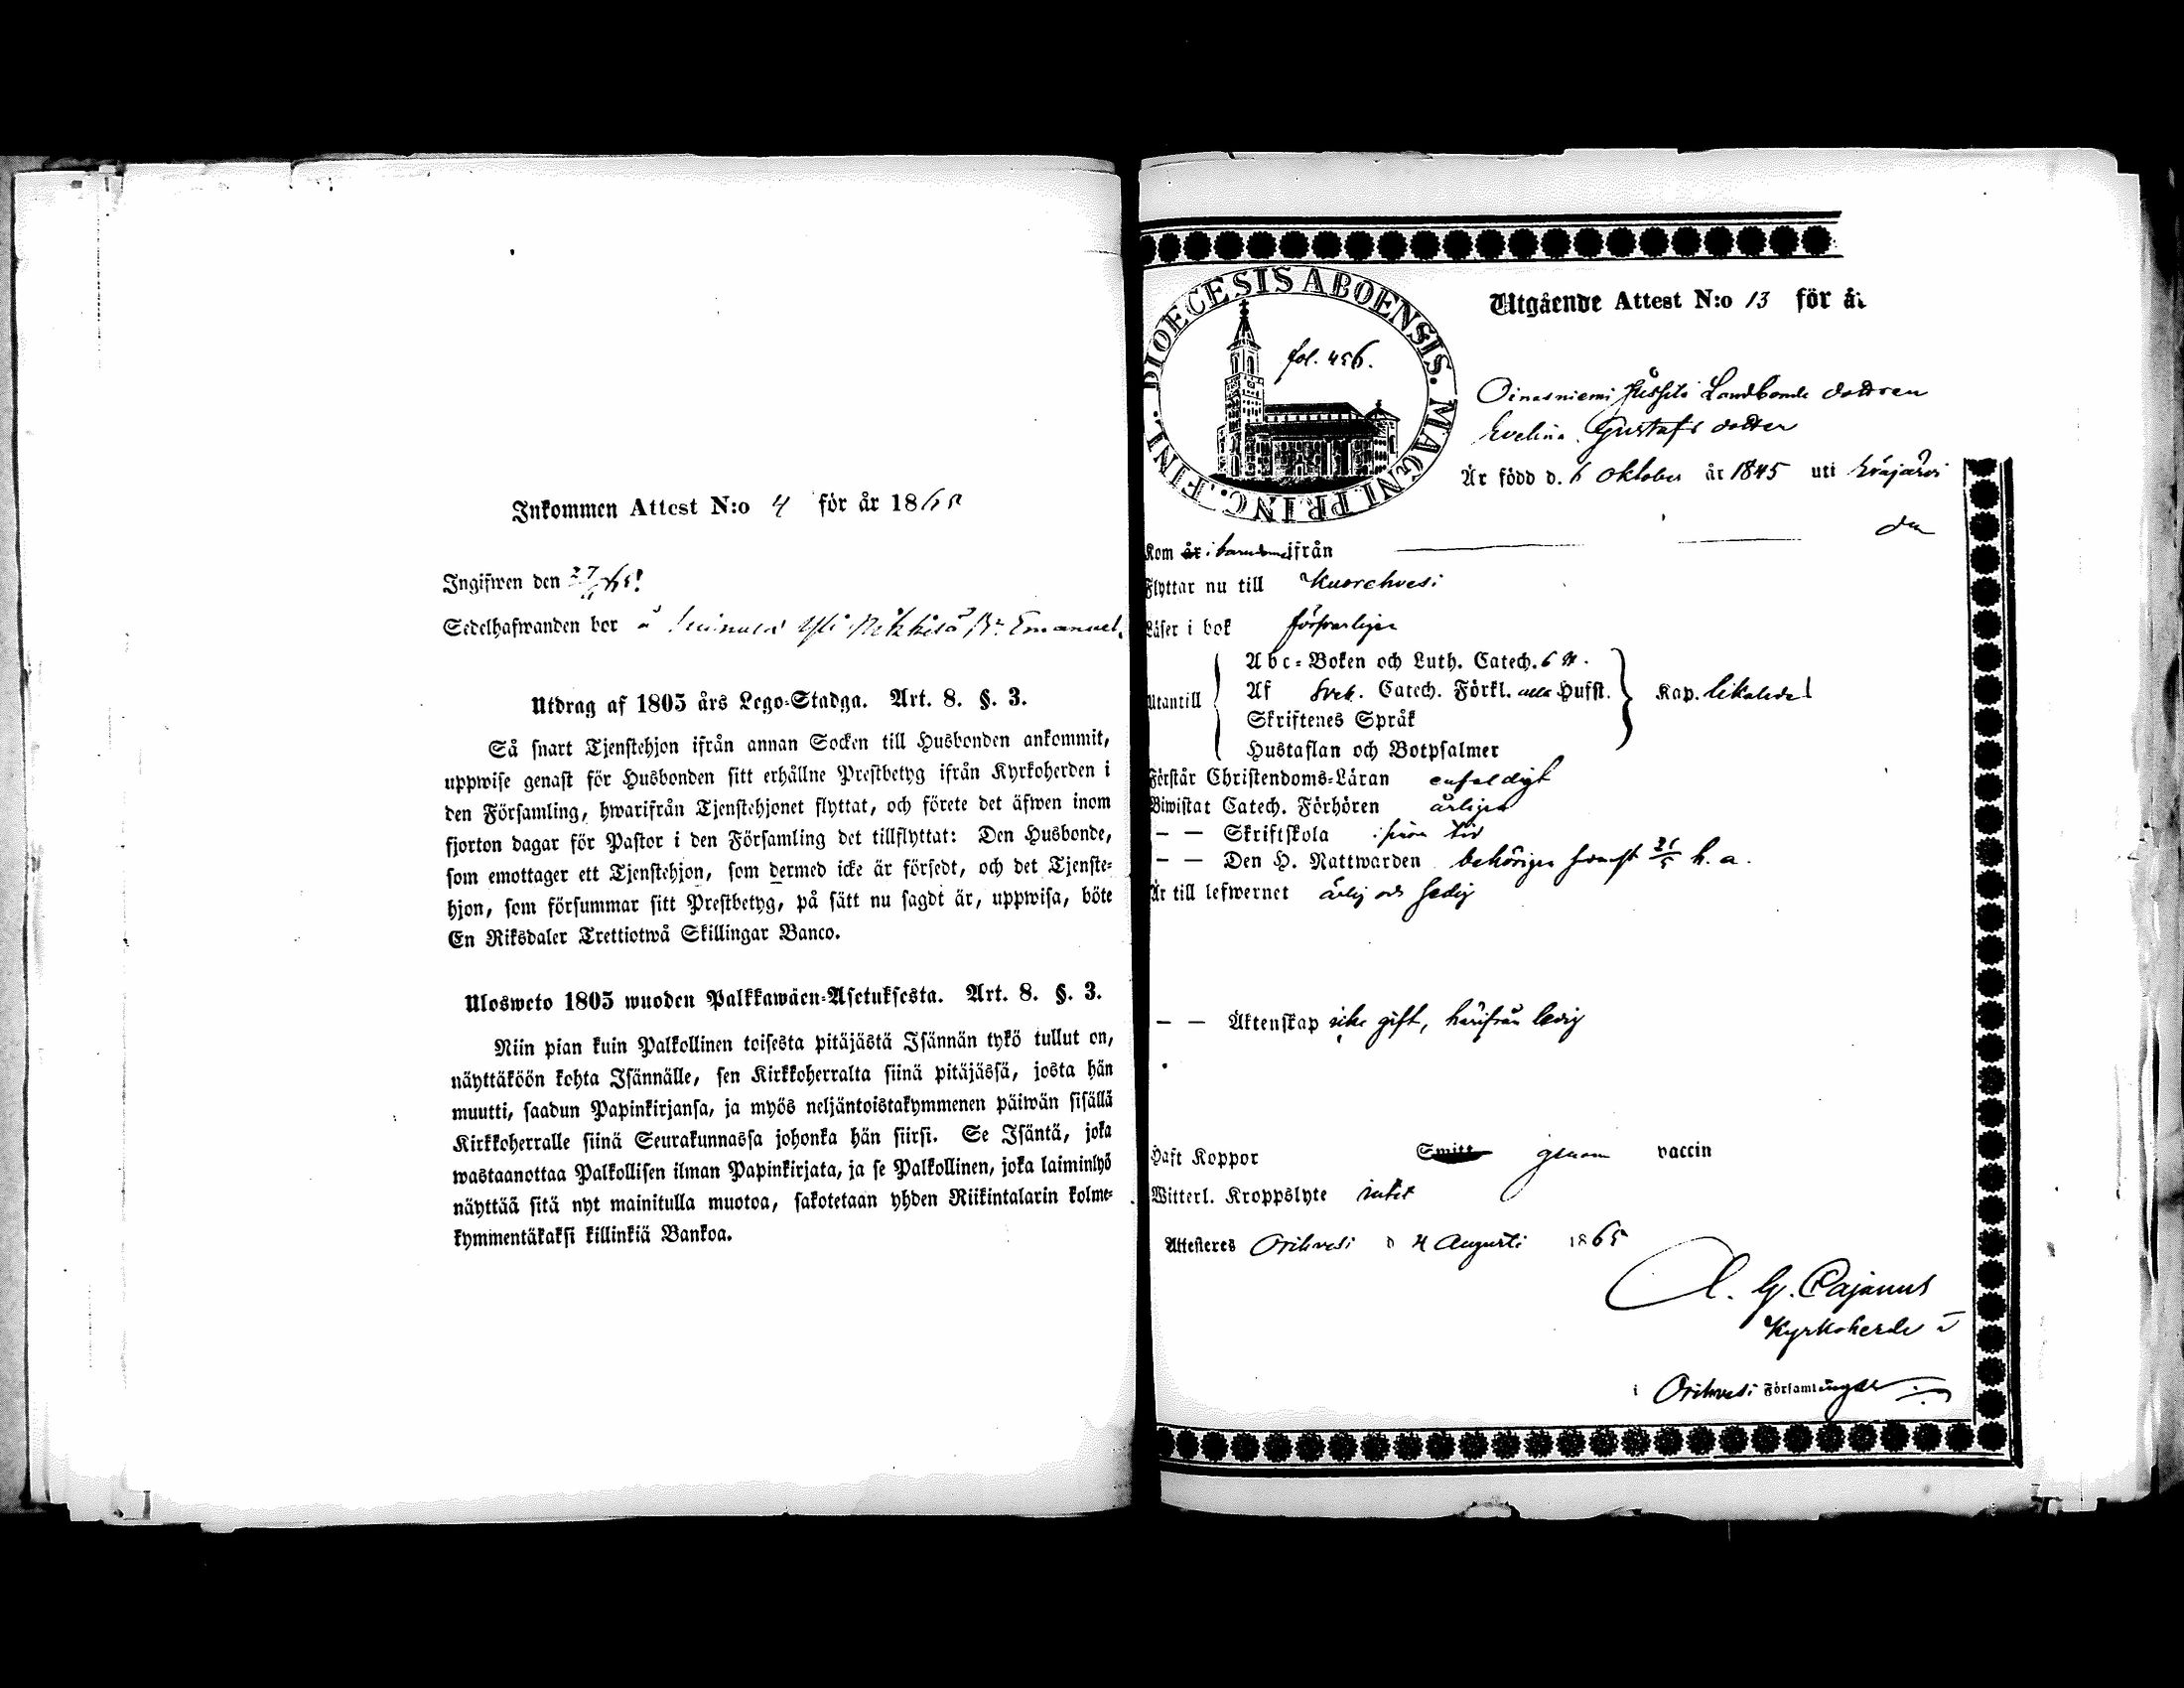 Inkommen Attest N:o 4 för år 1865
Ingifwen den 27
Sedelhafwanden bor å Yli Emanuel
Utdrag af 1805 års Lego-Stadga. Art. 8. §. 3.
Så snart Tjenstehjon ifrån annan Socken till Husbonden ankommit,
uppwise genast för Husbonden sitt erhållne Prestbetyg ifrån Kyrkoherden i
den Församling, hwarifrån Tjenstehjonet flyttat, och förete det äfwen inom
fjorton dagar för Pastor i den Församling det tillflyttat: Den Husbonde,
som emottager ett Tjenstehjon, som dermed icke är försedt, och det Tjenste-
hjon, som försummar sitt Prestbetyg, på sätt nu sagdt är, uppwisa, böte
En Riksdaler Trettiotwå Skillingar Banco.
Ulosweto 1805 wuoden Palkkawäen-Asetuksesta. Art. 8. §. 3.
Niin pian kuin Palkollinen toisesta pitäjästä Isännän tykö tullut on,
näyttäköön kohta Isännälle, sen Kirkkoherralta siinä pitäjässä, josta hän
muutti, saadun Papinkirjansa, ja myös neljäntoistakymmenen päiwän sisällä
Kirkkoherralle siinä Seurakunnassa johonka hän siirsi. Se Isäntä, joka
wastaanottaa Palkollisen ilman Papinkirjata, ja se Palkollinen, joka laiminlyö
näyttää sitä nyt mainitulla muotoa, sakotetaan yhden Riikintalarin kolme-
kymmentäkaksi killinkiä Bankoa.
DIOECESIS ABOENSIS. MAGNI PRINC. FINL.
fol. 456.
Utgående Attest N:o 13 för år
Oinasniemi Landbonde dottren
Evelina Gustafs dotter
Är född d. 6 oktober år 1845 uti Eräjärvi
den
Kom år i barndomen ifrån
Flyttar nu till Kuorehvesi
Läser i bok försvarligen
Utantill
Abc-Boken och Luth. Catech. 6 st.
Af Sveb. Catech. Förkl. alla Husst.
Skriftenes Språk
Hustaflan och Botpsalmer
Kap. likaledes
Förstår Christendoms-Läran enfaldigt
Biwistat Catech. Förhören årligen
— — Skriftskola i sinom tid
— — Den H. Nattwarden behörigen senast 25/5 h. a.
Är till lefwernet ärlig och sedig
— — Äktenskap icke gift, härifrån ledig
Haft Koppor Smitt genom vaccin
Witterl. Kroppslyte intet
Attesteres Orihvesi d 4 Augusti 1865
A. G. Cajanus
Kyrkoherde
i Orihvesi Församlingar